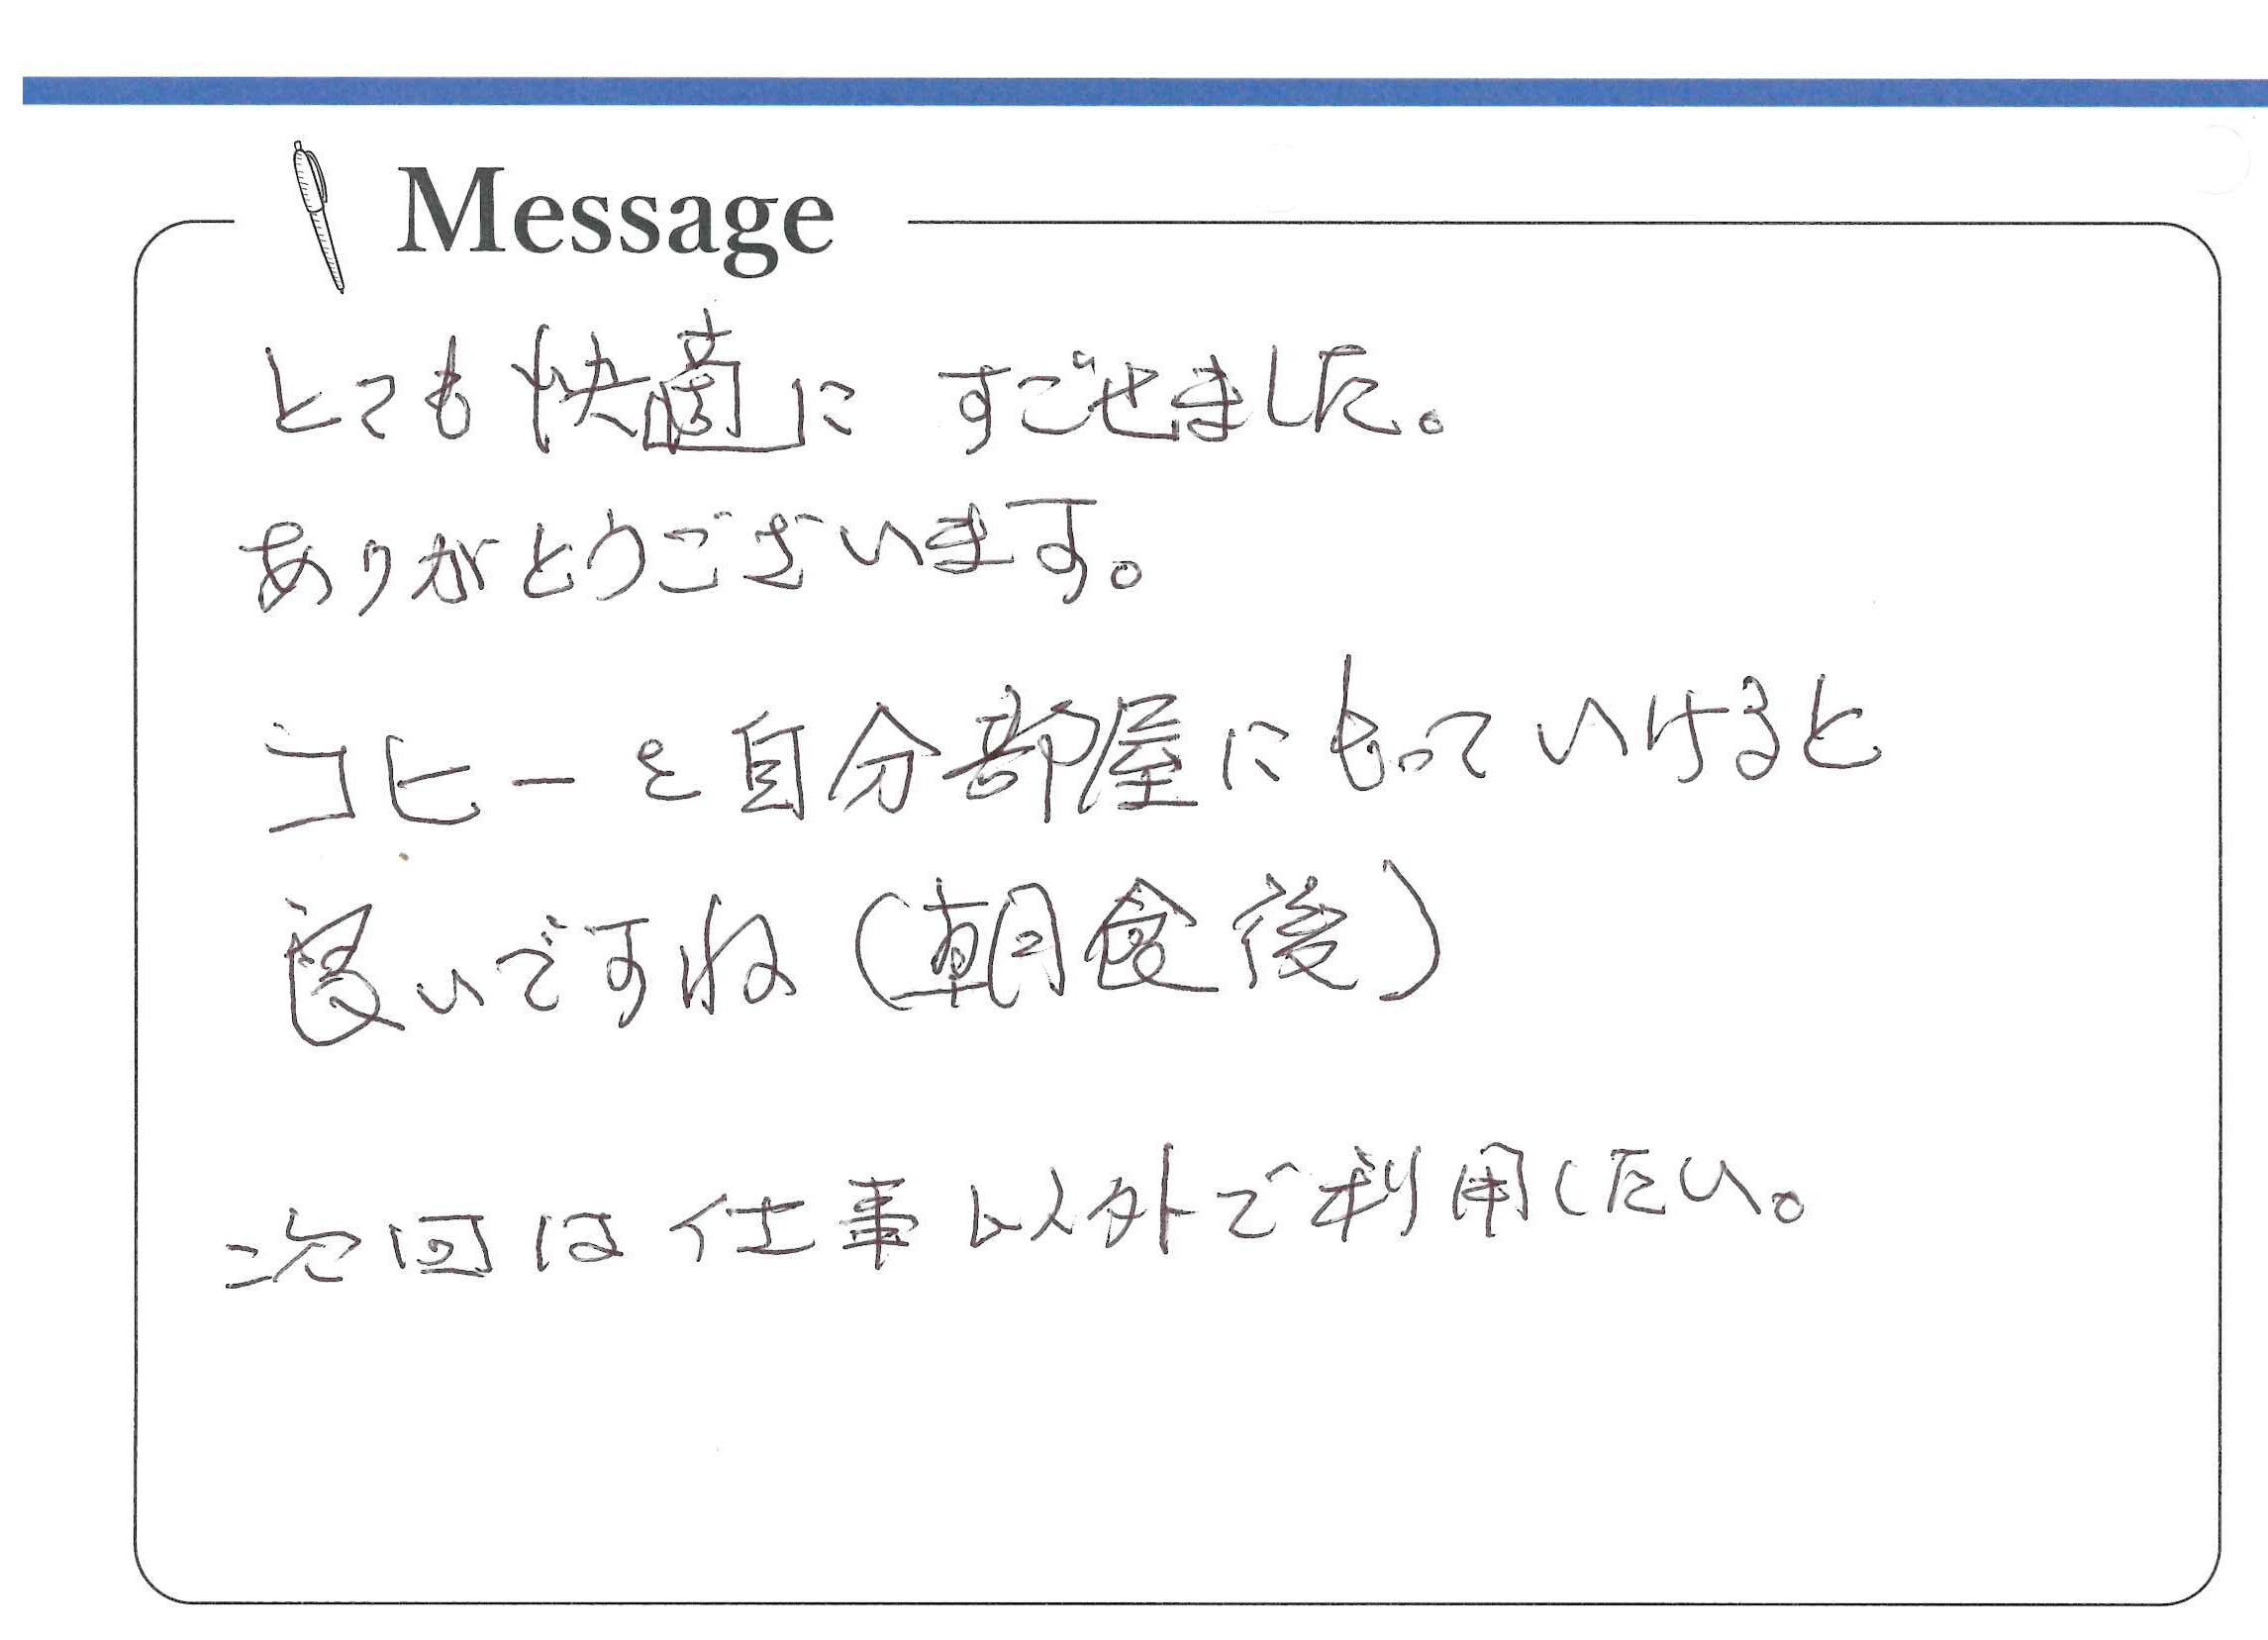 Message
とても快適に すごせました。
ありがとうございます。
コヒーを自分部屋にもっていけると
良いですね(朝食後)
次回は仕事以外で利用したい。